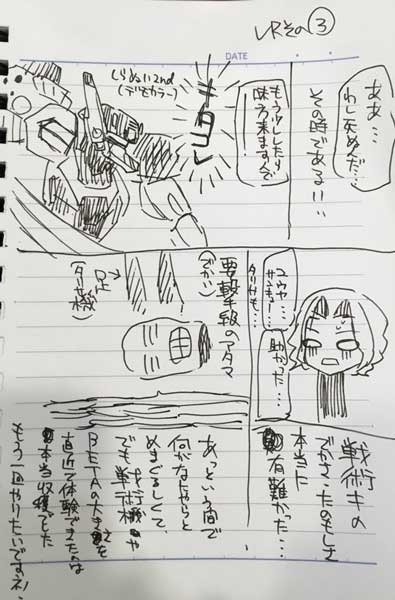 VRその③
DATE
ああ…
わし死ぬんだ…
その時である!!
もう少ししたら
味方来ますんで!
キラッ
しらぬい2nd
(デモカラー)
ユウヤ…
サンキュ!…
タリサも…
助かった…
要撃手級のアタマ
(でかい)
足
(タリサ機)
戦術キの
でかさ・たのもしさ
本当に
有難かった…
あっという間で
何がなんやらと
めまぐるしくて、
でも戦術機や
BETAの大きさを
直近で体験できたのは
本当収穫でした
もう一回やりたいですネ!